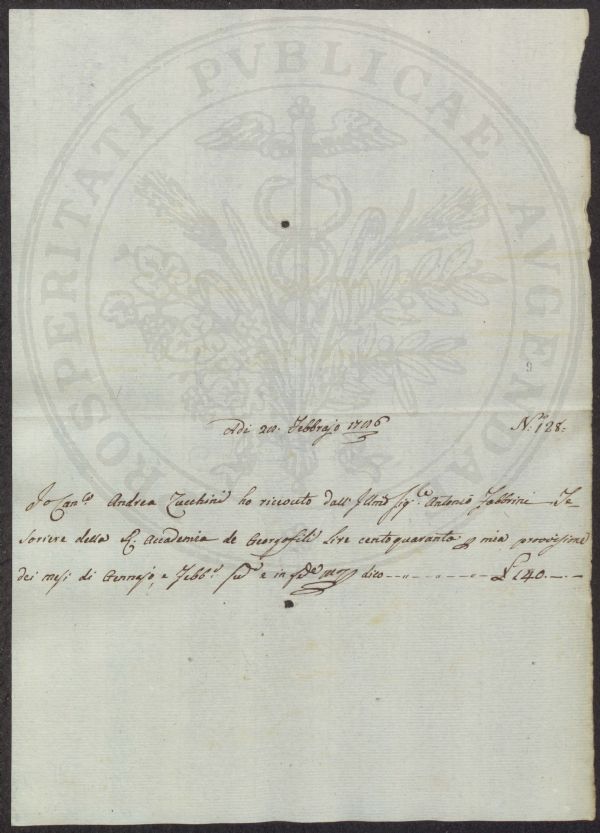 PROSPERITATI PVBLICAE AVGENDAE
9
Adi 20. Febbrajo 1786
N.º 128=
Io Can.co Andrea Zucchini ho ricevuto dall' Illmo Sig.re Antonio Fabbrini Te
soriere della R: Accademia de Georgofili Lire centoquaranta p mia provvisione
dei mesi di Gennajo, e Febb.o sud.o e in fede dico £ 140.-.-